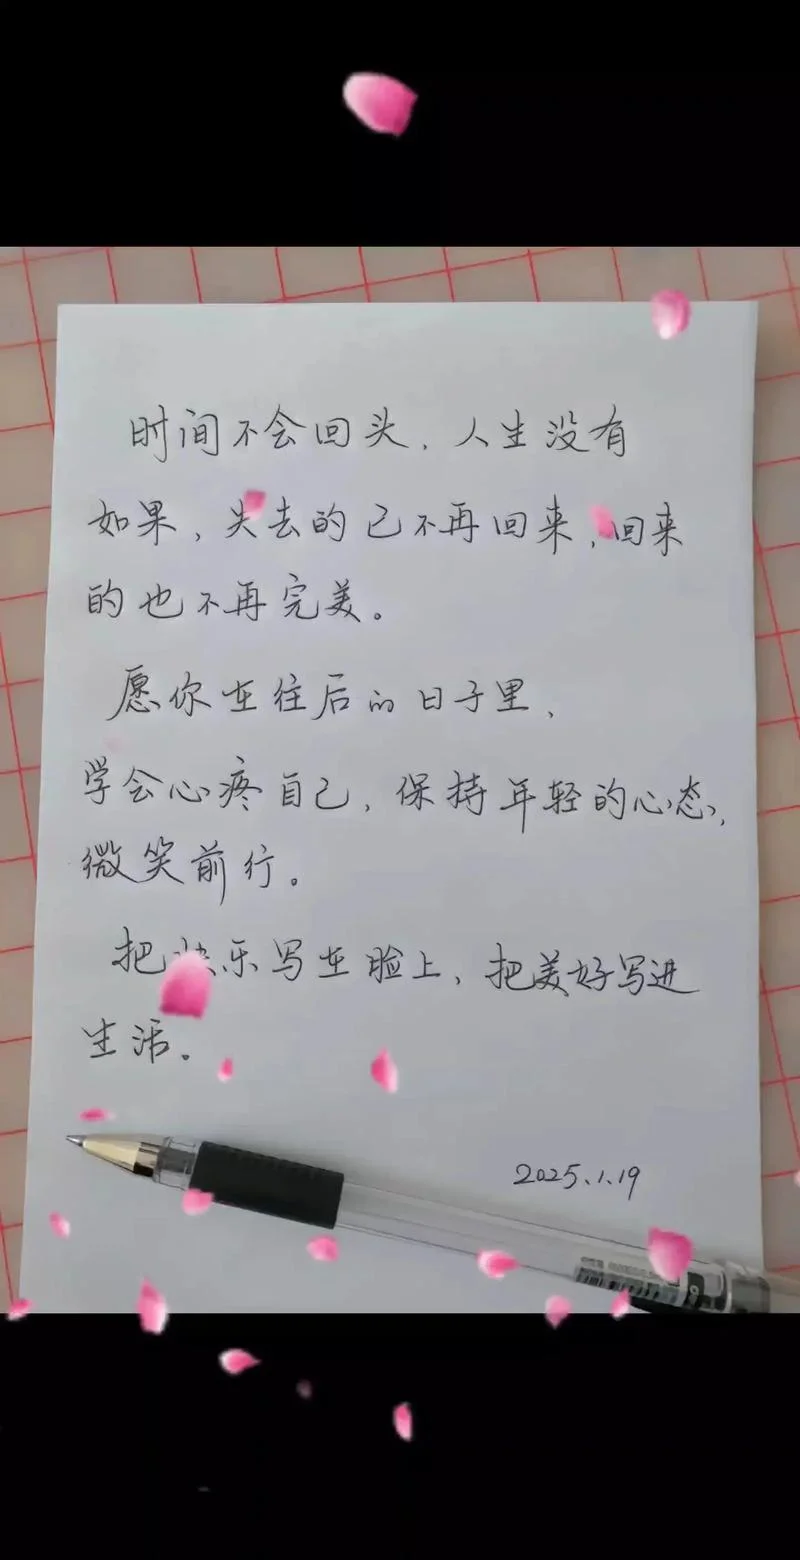 时间不会回头，人生没有
如果，失去的已不再回来，回来
的也不再完美。
愿你在往后的日子里，
学会心疼自己，保持年轻的心态，
微笑前行。
把快乐写在脸上，把美好写进
生活。
2025.1.19